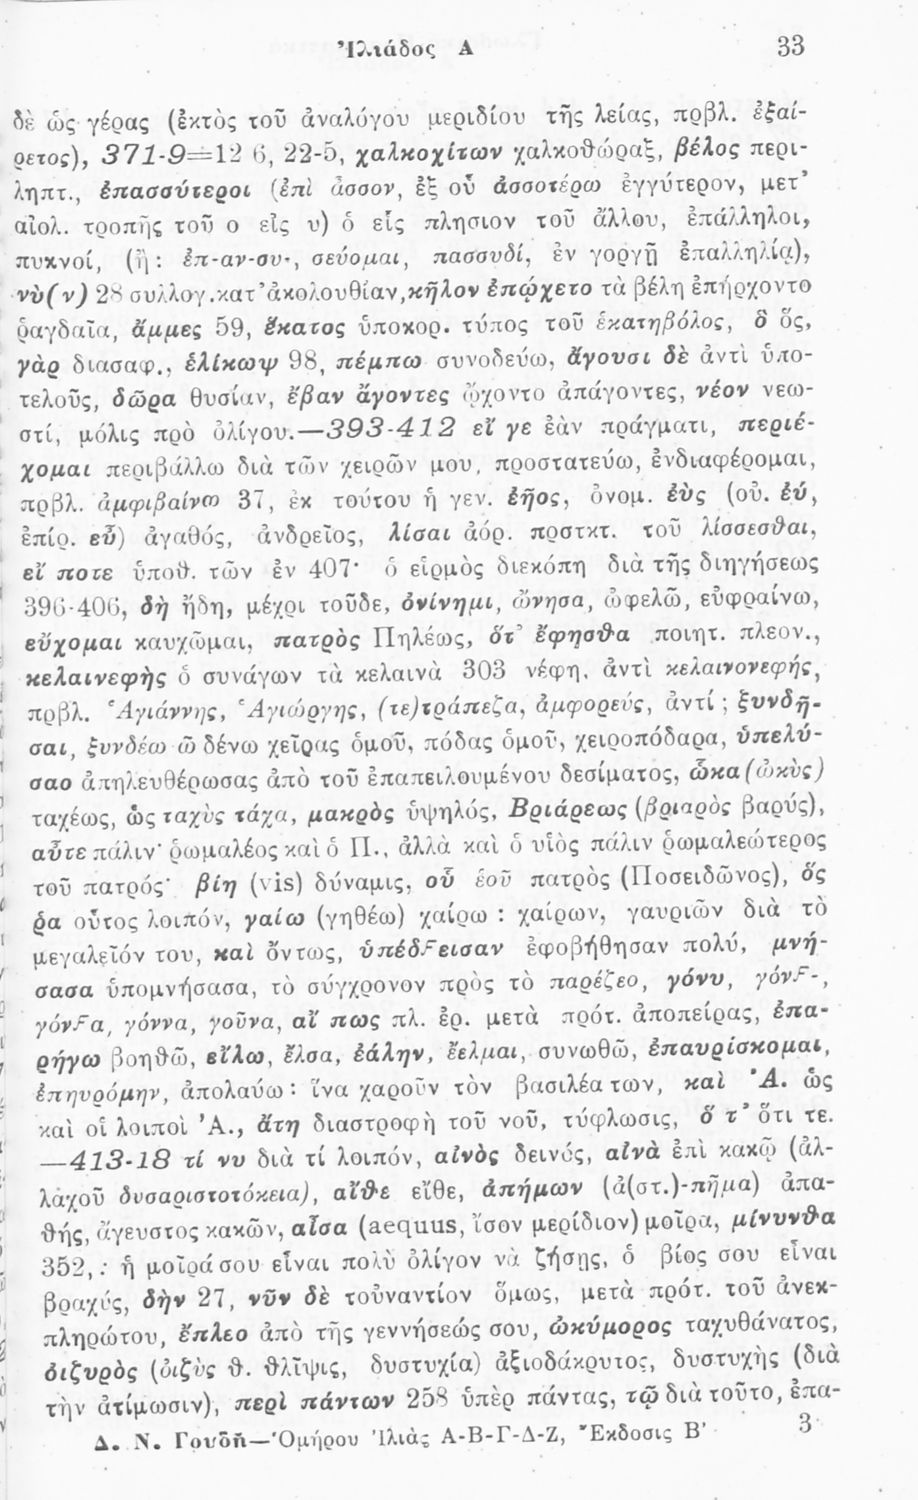 Ἰλιάδος Α 33
δὲ ὡς γέρας (ἐκτὸς τοῦ ἀναλόγου μεριδίου τῆς λείας, πρβλ. ἐξαί-
ρετος), 371-9=12 6, 22-5, χαλκοχίτων χαλκοθώραξ, βέλος περι-
ληπτ., ἐπασσύτεροι (ἐπὶ ἆσσον, ἐξ οὗ ἀσσοτέρω ἐγγύτερον, μετ᾽
αἰολ. τροπῆς τοῦ ο εἰς υ) ὁ εἷς πλησιον τοῦ ἄλλου, ἐπάλληλοι,
πυκνοί, (ἢ: ἐπ-αν-συ-, σεύομαι, πασσυδί, ἐν γοργῇ ἐπαλληλίᾳ),
νὺ(ν) 28 συλλογ.κατ᾽ἀκολουθίαν,κῆλον ἐπῴχετο τὰ βέλη ἐπήρχοντο
ῥαγδαῖα, ἄμμες 59, ἕκατος ὑποκορ. τύπος τοῦ ἑκατηβόλος, ὃ ὅς,
γὰρ διασαφ., ἑλίκωψ 98, πέμπω συνοδεύω, ἄγουσι δὲ ἀντὶ ὑπο-
τελοῦς, δῶρα θυσίαν, ἔβαν ἄγοντες ᾤχοντο ἀπάγοντες, νέον νεω-
στί, μόλις πρὸ ὀλίγου.—393-412 εἴ γε ἐὰν πράγματι, περιέ-
χομαι περιβάλλω διὰ τῶν χειρῶν μου, προστατεύω, ἐνδιαφέρομαι,
πρβλ. ἀμφιβαίνω 37, ἐκ τούτου ἡ γεν. ἐῆος, ὀνομ. ἐὺς (οὐ. ἐύ,
ἐπίρ. εὖ) ἀγαθός, ἀνδρεῖος, λίσαι ἀόρ. προστκτ. τοῦ λίσσεσθαι,
εἴ ποτε ὑποθ. τῶν ἐν 407· ὁ εἱρμὸς διεκόπη διὰ τῆς διηγήσεως
396-406, δὴ ἤδη, μέχρι τοῦδε, ὀνίνημι, ὤνησα, ὠφελῶ, εὐφραίνω,
εὔχομαι καυχῶμαι, πατρὸς Πηλέως, ὅτ᾽ ἔφησθα ποιητ. πλεον.,
κελαινεφὴς ὁ συνάγων τὰ κελαινὰ 303 νέφη, ἀντὶ κελαινονεφής,
πρβλ. Ἁγιάννης, Ἁγιώργης, (τε)τράπεζα, ἀμφορεύς, ἀντί ; ξυνδῆ-
σαι, ξυνδέω ῶ δένω χεῖρας ὁμοῦ, πόδας ὁμοῦ, χειροπόδαρα, ὑπελύ-
σαο ἀπηλευθέρωσας ἀπὸ τοῦ ἐπαπειλουμένου δεσίματος, ὦκα (ὠκὺς)
ταχέως, ὡς ταχὺς τάχα, μακρὸς ὑψηλός, Βριάρεως (βριαρὸς βαρύς),
αὖτε πάλιν· ῥωμαλέος καὶ ὁ Π., ἀλλὰ καὶ ὁ υἱὸς πάλιν ῥωμαλεώτερος
τοῦ πατρός· βίη (vis) δύναμις, οὗ ἑοῦ πατρὸς (Ποσειδῶνος), ὅς
ῥα οὗτος λοιπόν, γαίω (γηθέω) χαίρω : χαίρων, γαυριῶν διὰ τὸ
μεγαλεῖόν του, καὶ ὄντως, ὑπέδϜεισαν ἐφοβήθησαν πολύ, μνή-
σασα ὑπομνήσασα, τὸ σύγχρονον πρὸς τὸ παρέζεο, γόνυ, γόνϜ-,
γόνϜα, γόννα, γοῦνα, αἴ πως πλ. ἐρ. μετὰ πρότ. ἀποπείρας, ἐπα-
ρήγω βοηθῶ, εἴλω, ἔλσα, ἐάλην, ἔελμαι, συνωθῶ, ἐπαυρίσκομαι,
ἐπηυρόμην, ἀπολαύω : ἵνα χαροῦν τὸν βασιλέα των, καὶ Ἀ. ὡς
καὶ οἱ λοιποὶ Ἀ., ἄτη διαστροφὴ τοῦ νοῦ, τύφλωσις, ὅ τ᾽ ὅτι τε.
—413-18 τί νυ διὰ τί λοιπόν, αἰνὸς δεινός, αἰνὰ ἐπὶ κακῷ (ἀλ-
λαχοῦ δυσαριστοτόκεια), αἴθε εἴθε, ἀπήμων (ἀ(στ.)-πῆμα) ἀπα-
θής, ἄγευστος κακῶν, αἶσα (aequus, ἴσον μερίδιον) μοῖρα, μίνυνθα
352,: ἡ μοῖρά σου εἶναι πολὺ ὀλίγον νὰ ζήσῃς, ὁ βίος σου εἶναι
βραχύς, δὴν 27, νῦν δὲ τοὐναντίον ὅμως, μετὰ πρότ. τοῦ ἀνεκ-
πληρώτου, ἔπλεο ἀπὸ τῆς γεννήσεώς σου, ὠκύμορος ταχυθάνατος,
ὀιζυρὸς (ὀιζὺς θ. θλῖψις, δυστυχία) ἀξιοδάκρυτος, δυστυχὴς (διὰ
τὴν ἀτίμωσιν), περὶ πάντων 258 ὑπὲρ πάντας, τῷ διὰ τοῦτο, ἐπα-
Δ. Ν. Γουδῆ—Ὁμήρου Ἰλιὰς Α-Β-Γ-Δ-Ζ, Ἔκδοσις Β᾽ 3